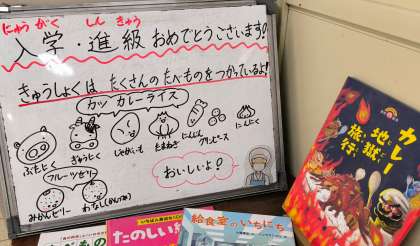 にゅう がく しん きゅう
入学・進級 おめでとうございます!
きゅうしょくは たくさんの たべものをつかっているよ!
カツ カレーライス
ぶたにく
ぎゅうにく
じゃがいも
たまねぎ
にんじん
グリンピース
にんにく
フルーツゼリー
みかんゼリー
おいしいよ!
カレー地獄旅行
いちばん
たのしい
給食室のいちにち